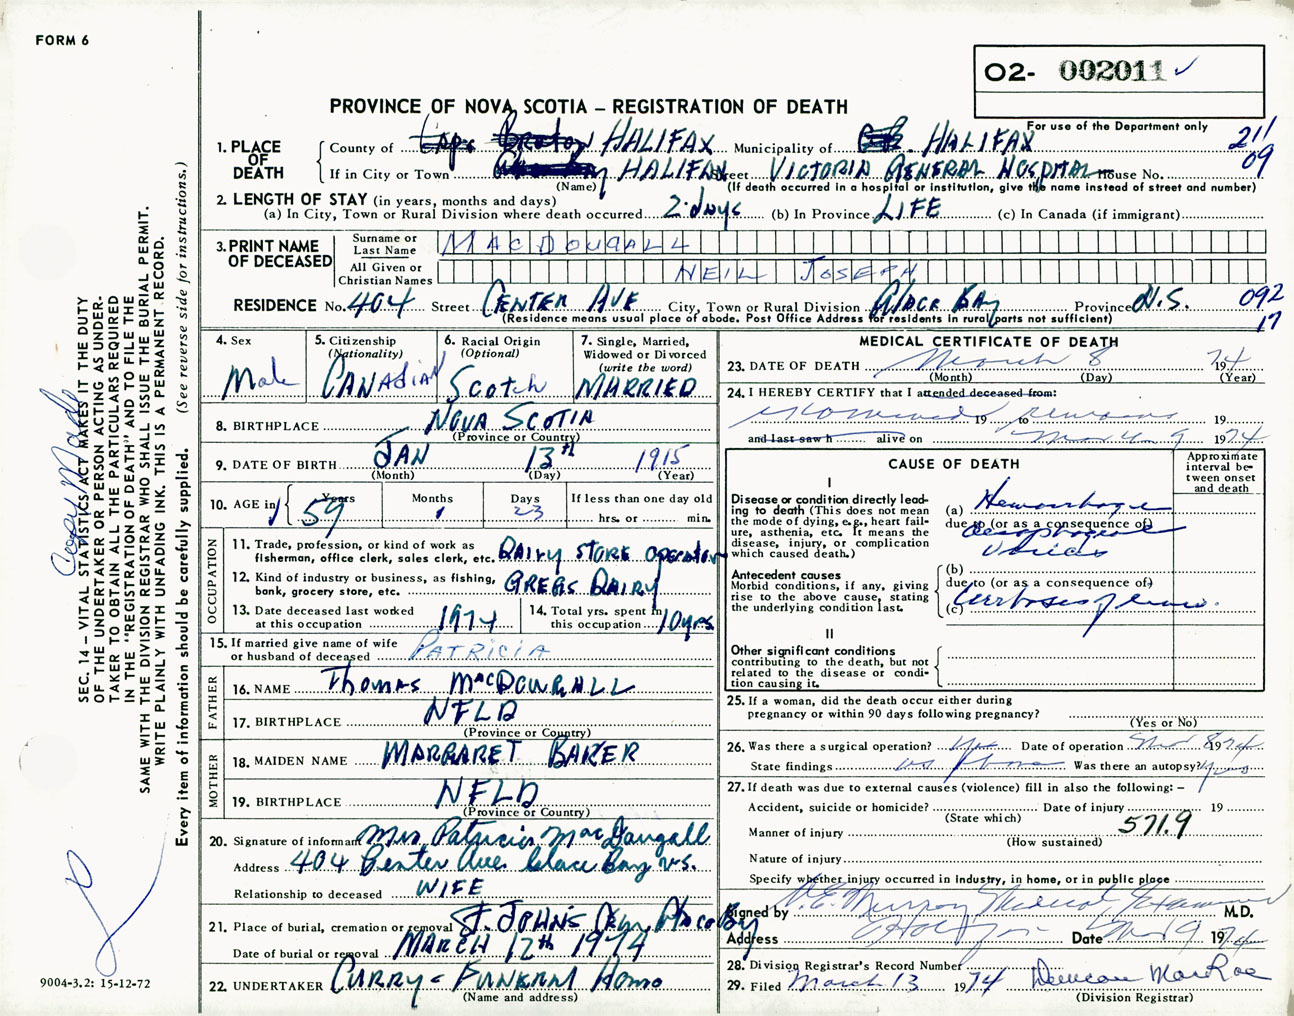 FORM 6
O2- 002011 ✓
PROVINCE OF NOVA SCOTIA – REGISTRATION OF DEATH
For use of the Department only
1. PLACE OF DEATH
County of Cape Breton HALIFAX Municipality of C.B. HALIFAX
211
09
If in City or Town HALIFAX Street VICTORIA GENERAL HOSPITAL House No.
(Name) (If death occurred in a hospital or institution, give the name instead of street and number)
2. LENGTH OF STAY (in years, months and days)
(a) In City, Town or Rural Division where death occurred 2 days (b) In Province LIFE (c) In Canada (if immigrant)
3. PRINT NAME OF DECEASED
Surname or Last Name MACDOUGALL
All Given or Christian Names NEIL JOSEPH
RESIDENCE No. 404 Street CENTER AVE City, Town or Rural Division GLACE BAY Province N.S.
092
17
(Residence means usual place of abode. Post Office Address for residents in rural parts not sufficient)
4. Sex
Male
5. Citizenship
(Nationality)
CANADIAN
6. Racial Origin
(Optional)
Scotch
7. Single, Married,
Widowed or Divorced
(write the word)
MARRIED
8. BIRTHPLACE NOVA SCOTIA
(Province or Country)
9. DATE OF BIRTH JAN 13th 1915
(Month) (Day) (Year)
10. AGE in
Years
59
Months
1
Days
23
If less than one day old
hrs. or min.
OCCUPATION
11. Trade, profession, or kind of work as
fisherman, office clerk, sales clerk, etc. DAIRY STORE OPERATOR
12. Kind of industry or business, as fishing,
bank, grocery store, etc. GREGS DAIRY
13. Date deceased last worked
at this occupation 1974
14. Total yrs. spent in
this occupation 10 yrs.
15. If married give name of wife
or husband of deceased PATRICIA
FATHER
16. NAME THOMAS MACDOUGALL
17. BIRTHPLACE NFLD
(Province or Country)
MOTHER
18. MAIDEN NAME MARGARET BAKER
19. BIRTHPLACE NFLD
(Province or Country)
20. Signature of informant Mrs Patricia MacDougall
Address 404 Center Ave Glace Bay N.S.
Relationship to deceased WIFE
21. Place of burial, cremation or removal ST. JOHN'S Cem Glace Bay
Date of burial or removal MARCH 12th 1974
22. UNDERTAKER CURRY - FUNERAL HOME
(Name and address)
MEDICAL CERTIFICATE OF DEATH
23. DATE OF DEATH March 8 1974
(Month) (Day) (Year)
24. I HEREBY CERTIFY that I attended deceased from:
19 to 19
and last saw h alive on 1974
CAUSE OF DEATH
Approximate interval between onset and death
I
Disease or condition directly leading to death (This does not mean the mode of dying, e.g., heart failure, asthenia, etc. It means the disease, injury, or complication which caused death.)
(a) Hemorrhage
due to (or as a consequence of)
oesophageal
varices
Antecedent causes
Morbid conditions, if any, giving rise to the above cause, stating the underlying condition last.
(b)
due to (or as a consequence of)
(c) Cirrhosis of liver.
II
Other significant conditions
contributing to the death, but not related to the disease or condition causing it.
25. If a woman, did the death occur either during
pregnancy or within 90 days following pregnancy?
(Yes or No)
26. Was there a surgical operation? yes Date of operation Mar 8 1974
State findings as above Was there an autopsy? yes
27. If death was due to external causes (violence) fill in also the following: –
Accident, suicide or homicide? Date of injury 19
(State which)
Manner of injury 571.9
(How sustained)
Nature of injury
Specify whether injury occurred in industry, in home, or in public place
Signed by Murray Medical Examiner M.D.
Address Date Mar 9 1974
28. Division Registrar's Record Number
29. Filed March 13 1974 Duncan MacRae
(Division Registrar)
SEC. 14 – VITAL STATISTICS ACT MAKES IT THE DUTY
OF THE UNDERTAKER OR PERSON ACTING AS UNDER-
TAKER TO OBTAIN ALL THE PARTICULARS REQUIRED
IN THE "REGISTRATION OF DEATH" AND TO FILE THE
SAME WITH THE DIVISION REGISTRAR WHO SHALL ISSUE THE BURIAL PERMIT.
WRITE PLAINLY WITH UNFADING INK. THIS IS A PERMANENT RECORD.
Every item of information should be carefully supplied. (See reverse side for instructions.)
Copy Made
9004-3.2: 15-12-72